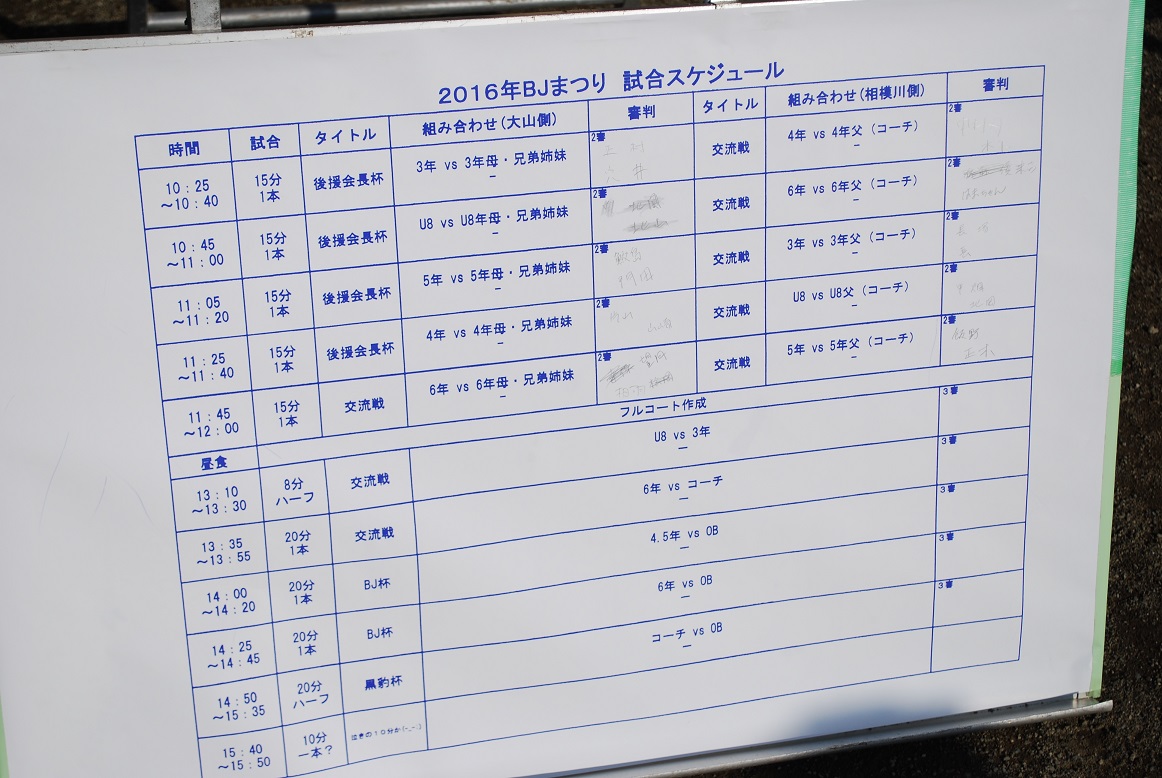 2016年BJまつり 試合スケジュール
時間 試合 タイトル 組み合わせ(大山側) 審判 タイトル 組み合わせ(相模川側) 審判
10:25 ～10:40 15分 1本 後援会長杯 3年 vs 3年母・兄弟姉妹 － 2審 交流戦 4年 vs 4年父(コーチ) － 2審
10:45 ～11:00 15分 1本 後援会長杯 U8 vs U8年母・兄弟姉妹 － 2審 交流戦 6年 vs 6年父(コーチ) － 2審
11:05 ～11:20 15分 1本 後援会長杯 5年 vs 5年母・兄弟姉妹 － 2審 交流戦 3年 vs 3年父(コーチ) － 2審
11:25 ～11:40 15分 1本 後援会長杯 4年 vs 4年母・兄弟姉妹 － 2審 交流戦 U8 vs U8父(コーチ) － 2審
11:45 ～12:00 15分 1本 交流戦 6年 vs 6年母・兄弟姉妹 － 2審 交流戦 5年 vs 5年父(コーチ) － 2審
昼食 フルコート作成
13:10 ～13:30 8分 ハーフ 交流戦 U8 vs 3年 － 3審
13:35 ～13:55 20分 1本 交流戦 6年 vs コーチ － 3審
14:00 ～14:20 20分 1本 BJ杯 4.5年 vs OB － 3審
14:25 ～14:45 20分 1本 BJ杯 6年 vs OB － 3審
14:50 ～15:35 20分 ハーフ 黒豹杯 コーチ vs OB － 3審
15:40 ～15:50 10分 一本?